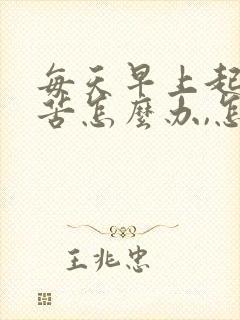 每天早上起
苦怎麼办,怎
王兆忠